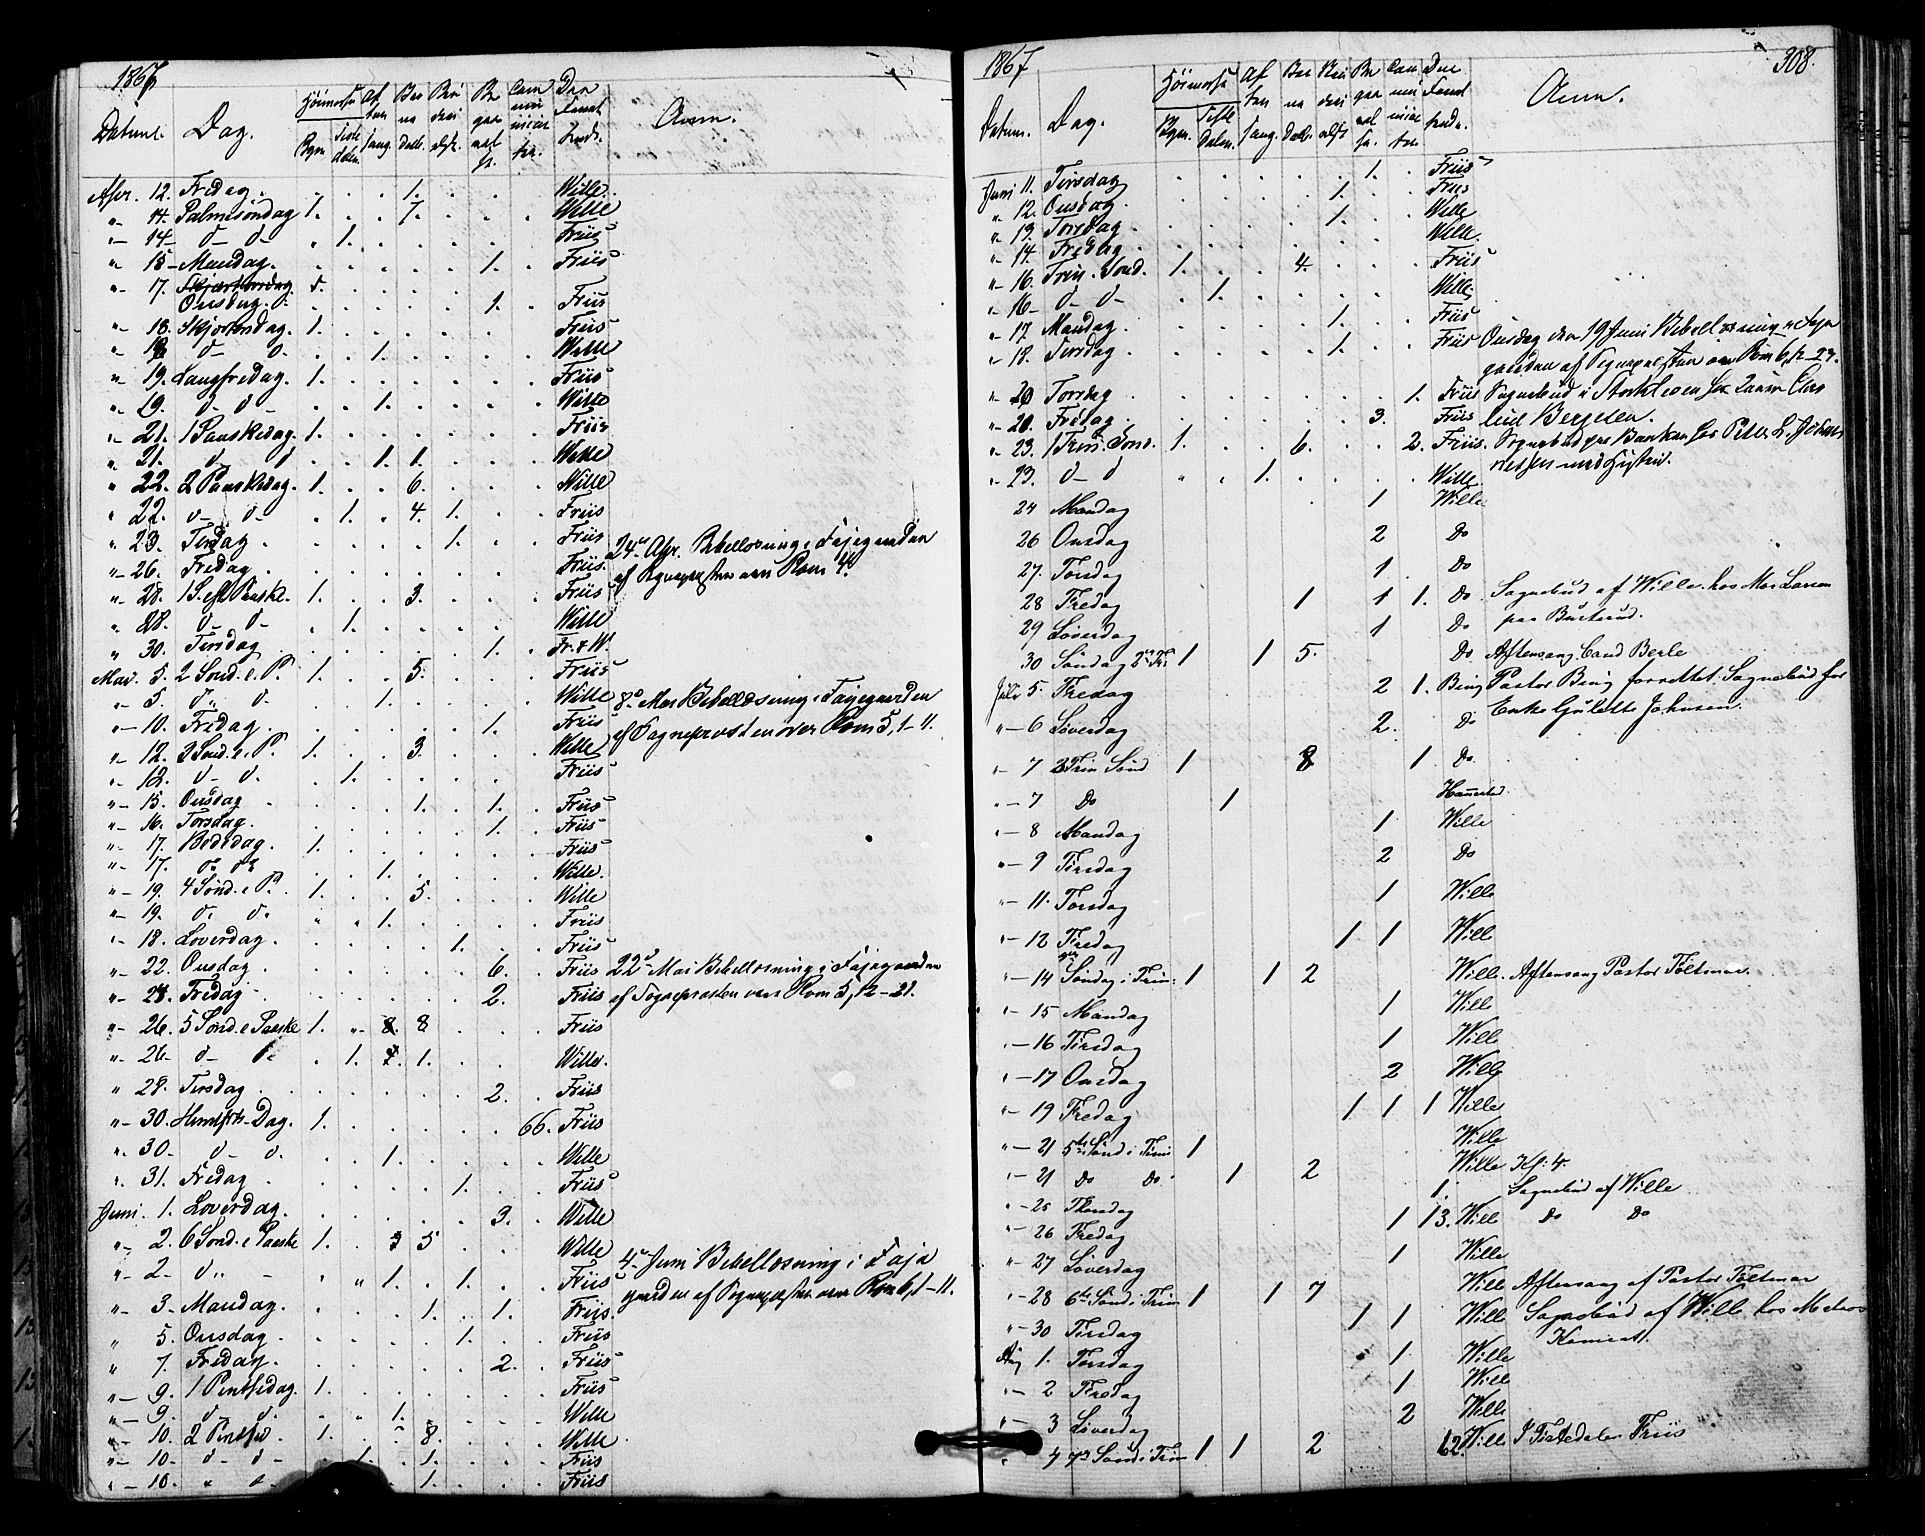 1867
Datum. Dag. Høimesse Byen Tistedalen Aftensang Barnedaab. Anm.
Apr. 12. Fredag. . . . 1. . . . Wille
" 14. Palmesøndag 1. . . 7. . . . Wille
"- 14- d- d- " 1. . . . . . Friis
" 15- Mandag. . . . . . 1. . Friis
" 17. Skjærtorsdag
Onsdag. . . . . . 1. . Friis
"- 18. Skjærtorsdag. 1. . . . . . . Friis
" 18 d- d. . . 1. . . . . Wille
" 19. Langfredag. 1. . . . . . . Friis
" 19. d- d- . . 1. . . . . Wille
"- 21. 1 Paaskedag. 1. . . . . . . Friis
" 21. d d . . 1. 1. . . . Wille
" 22. 2 Paaskedag. 1. . . 6. . . . Wille
" 22. d- d- . 1. " 4. 1. . . Friis
" 23. Tirsdag . . . . . 1. . . Friis 24de Apr. Bibellæsning i Fajegaarden
"- 26. Fredag . . . . . . . . Friis. af Sognepresten over Rom 4.
"- 28. 1 S. eft Paaske. 1. . . 3. . . . Friis
" 28. d- d- . 1. . . . . . Wille
" 30. Tirsdag . . . . . 1. . Fr. & W.
Mai. 5. 2 Sond. e. P. 1. . . 5. . . . Friis
"- 5. d" d. . . 1. . . . . Wille 8de Mai Bibellæsning i Fajegaarden
"- 10. Fredag . . . . . 1. . Friis af Sogneprosten over Rom 5, 1-11.
"- 12. 3 Sond. e. P. 1. . . 3. . . . Wille
"- 12. d- d. . 1. . . . . . Friis
"- 15. Onsdag . . . . 1. . 1. . Friis
"- 16. Torsdag. . . . . . 1. . Friis
"- 17. Bededag. 1. . . . . . . Friis
"- 17. d. d. . . 1. . . . . Wille.
"- 19. 4 Sond. e P. 1. . . 5. . . . Wille
"- 19. d. d. " " 1. . . . . Friis
"- 18. Loverdag. . . . . 1. . . Friis
"- 22. Onsdag . . . . . 6. . Friis 22de Mai Bibellæsning i Fajegaarden
"- 24. Fredag- . . . . . 2. . Friis af Sogneprosten over Rom 5, 12-21.
"- 26. 5 Sond. e Paaske 1. " 8. 8 . . . Friis
"- 26- d- d- . 1. 1. . . Wille.
" 28. Tirsdag . . . . . 2. . Friis
"- 30. Himlfrts-Dag. 1. . . . . . 66. Friis
". 30- d- d. . . 1. . . . . Wille
". 31. Fredag . . . . . 1. . . Friis
Juni. 1. Loverdag. . . . . . 3. . Wille
"- 2. 6 Sond. e Paaske 1. . 5 . . Wille 4de Juni Bibellæsning i Faje
"- 2- d" - . " 1. . 1. . . Friis gaarden af Sogneprsten over Rom 6, 1-11.
"- 3- Mandag . . . . 1. . 1. . Friis.
" 5. Onsdag . . . . . 1. . . Friis
" 7. Fredag. . . . . . 2. . Friis
"- 9. 1 Pintsedag. 1. . . . . . . Friis
"- 9. d- d. . " 1. . . . . Wille
"- 10. 2 Pintsed. 1. . . 8. . . . Wille
"- 10- d- d- . 1. . 1. . . . Friis
"- 10. " d . . . 1. . . . Friis
1867 308.
Datum. Dag. Høimesse Byen. Tistedalen. Aftensang. Barnedaab. Anm.
Juni 11. Tirsdag . . . . . 1. . Friis
" 12. Onsdag. . . . . 1. . . Friis
"- 13. Torsdag . . . . 1. . . Wille
"- 14. Fredag . . . . . . . Wille.
"- 16. Trin. Sond. 1. . . 4. . . . Friis
"- 16- d- d- . 1. . . . . . Wille
"- 17. Mandag . . . . 1. . . Friis
"- 18. Tirsdag . . . . 1. . . Friis Onsdag den 19 Juni Bibellæsning i Faje
gaarden af Sogneprsten over Rom 6, 12-23.
"- 20 Torsdag . . . . . . 1. Friis Sognebud i
Fredag . . . . . 3. . Friis
"- 23. 1 Trin. Sond. 1. . . 6. . . 2. Friis. Sognebud paa Banken hos
"- 23. d- d " " 1. . . . . Wille
24 Mandag 1 Wille
26 Onsdag 2 Do
27. Torsdag 1. Do
28 Fredag 1 1 1. Do Sognebud af Wille hos Mos Larsen
29 Løverdag 1 Do paa
30 Søndag 2den Tr. 1 1 5. Do Aftensang. Cand Berle
Juli 5. Fredag 2 1. Bing Pastor Bing forrettet Sognebud for
"- 6 Løverdag 2. Do Enke Johnsen.
"- 7 3 Trin Sønd 1 8 1 Do
"- 7 Do 1
"- 8 Mandag 1 Wille
"- 9 Tirsdag 2 Do
"- 11. Torsdag 1 Wille
"- 12 Fredag 1 1 Wille
"- 14 Søndag i Trin: 1 1 2 Wille. Aftensang Pastor Toltmar.
"- 15 Mandag 1 Wille
"- 16 Tirsdag 1 Wille
"- 17 Onsdag 2 Wille
"- 19 Fredag 1 1 1 Wille
"- 21 5te Sønd i Trin 1 Wille
"- 21 Do Do 1 2 Wille Kl: 4.
"- 25 Thorsdag 1. Sognebud af Wille
"- 26 Fredag 1 13. Wille Do Do
"- 27 Løverdag 1 Wille
"- 28 6te Sønd i Trin 1 1 7 Wille Aftensang af Pastor Toltmar
"- 30 Tirsdag 1 1 Wille Sognebud af Wille hos
Aug 1. Torsdag 1 Wille
"- 2 Fredag 1 Wille
"- 3 Løverdag 2 Wille
" 4 7de Sønd i Trin 1 1 2 62. Wille I Tistedalen Friis